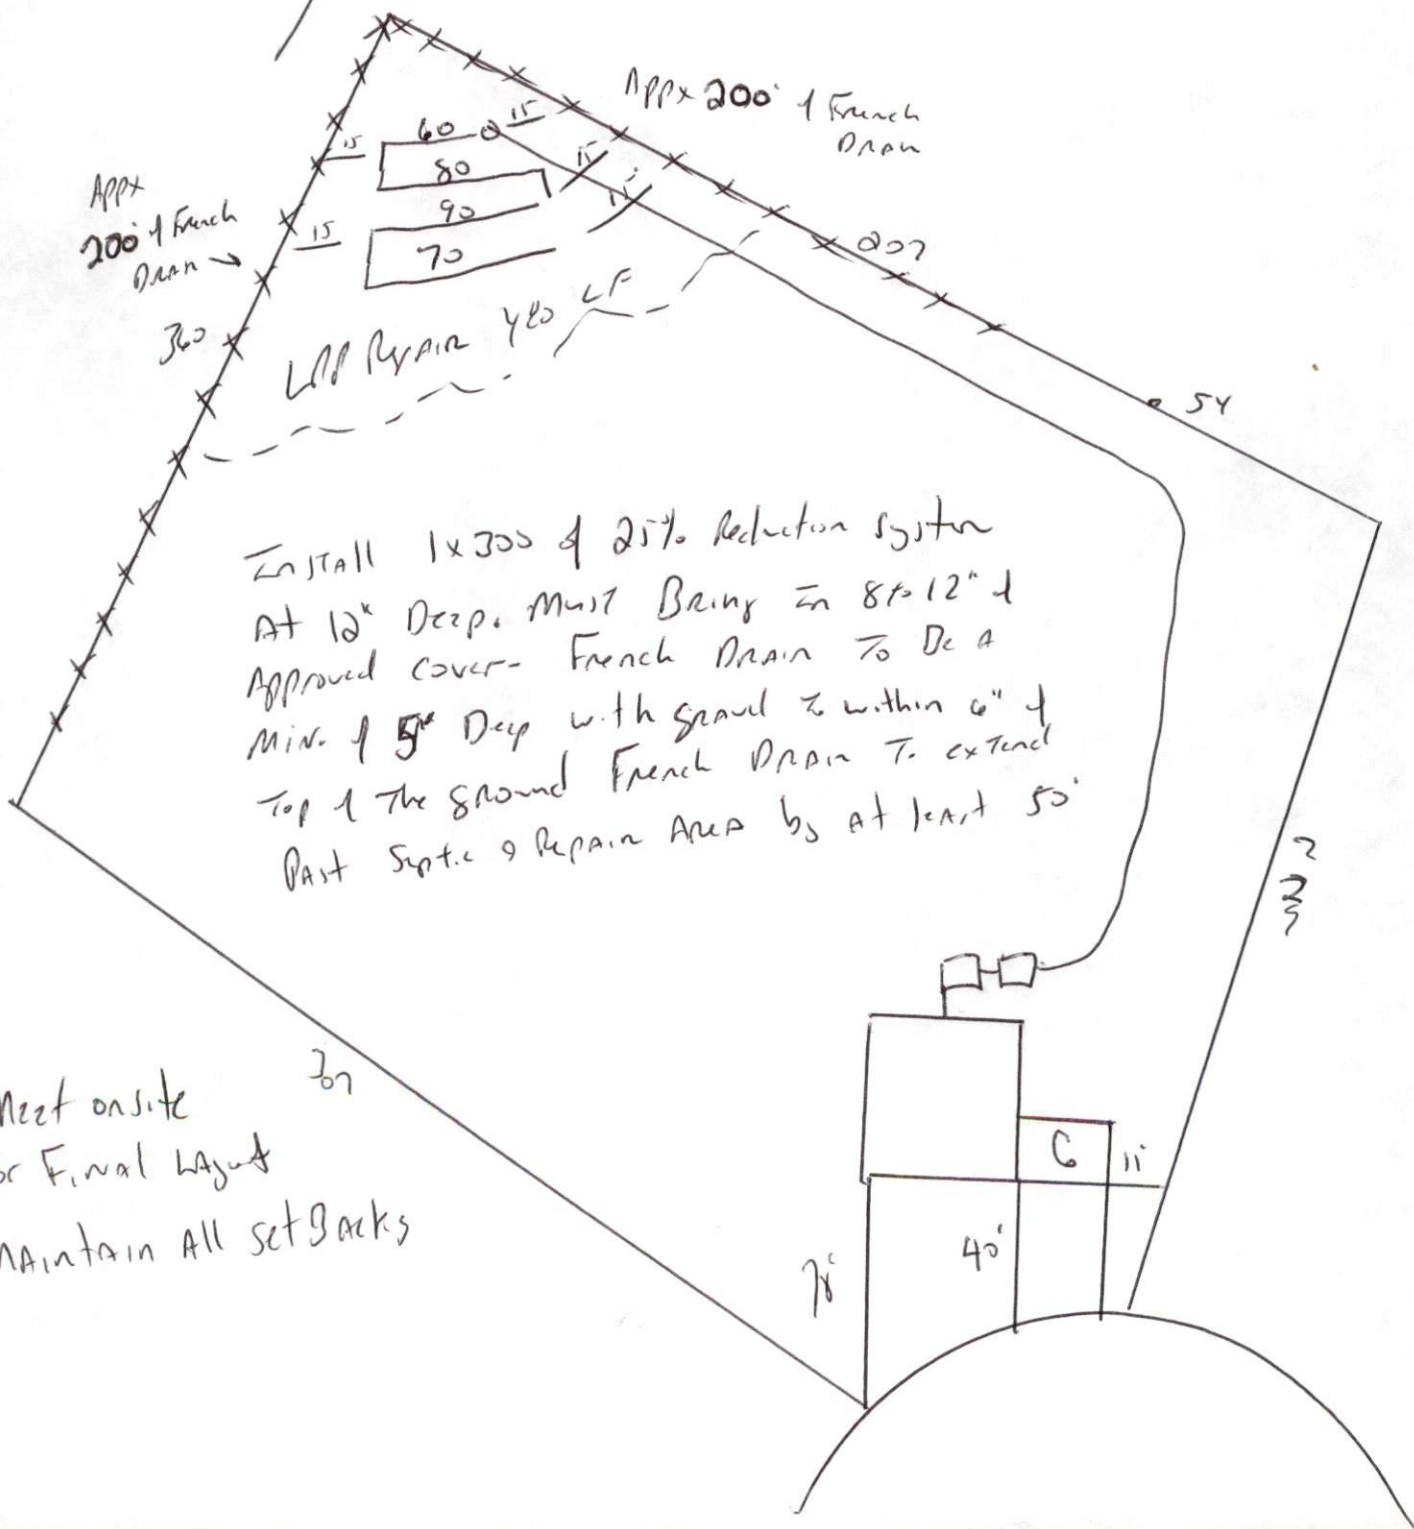 Appx 200' of French
Drain
60
15
15
80
15
90
11'
15
70
Appx
200' of French
Drain
207
360
LPP Repair 480 LF
54
Install 1x300 of 25% Reduction System
At 12" Deep. Must Bring In 8 to 12" of
Approved cover- French Drain To Be A
Min. of 5' Deep with gravel to within 6" of
Top of The ground French Drain To extend
Past Septic & Repair Area by at least 50'
307
Meet onsite
or Final Layout
Maintain All SetBacks
C
11'
40'
78'